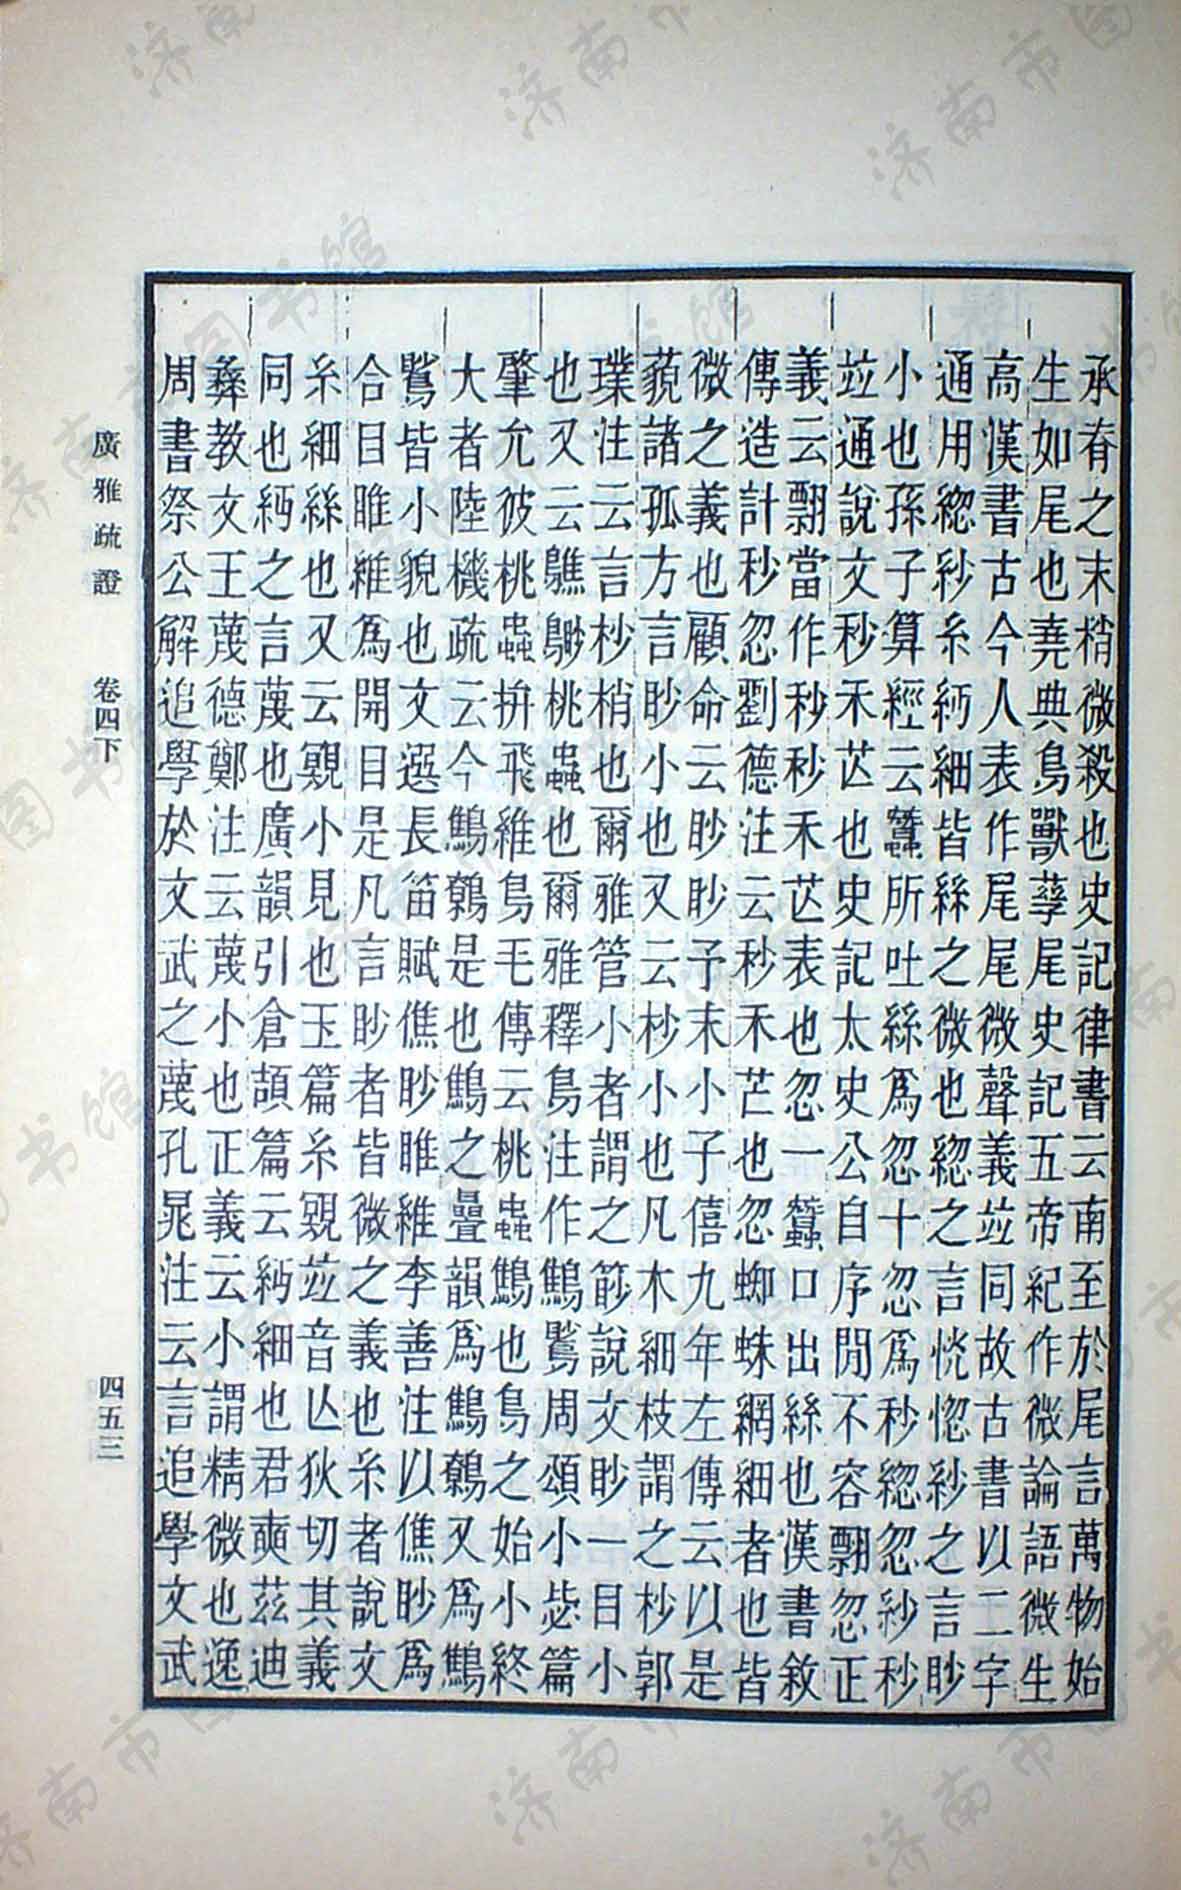 承脊之末梢微殺也史記律書云南至於尾言萬物始
生如尾也堯典鳥獸孳尾史記五帝紀作微論語微生
高漢書古今人表作尾尾微聲義竝同故古書以二字
通用緫紗糸細皆絲之微也緫之言恍惚紗之言眇
小也孫子算經云蠶所吐絲爲忽十忽爲秒緫忽紗秒
竝通說文秒禾芒也史記太史公自序閒不容翲忽正
義云翲當作秒秒禾芒表也忽一蠶口出絲也漢書敘
傳造計秒忽劉德注云秒禾芒也忽蜘蛛網細者也皆
微之義也顧命云眇眇予末小子僖九年左傳云以是
藐諸孤方言眇小也又云杪小也凡木細枝謂之杪郭
璞注云言杪梢也爾雅管小者謂之篎說文眇一目小
也又云鷦䳟桃蟲也爾雅釋鳥注作鷦周頌小毖篇
肇允彼桃蟲拚飛維鳥毛傳云桃蟲鷦也鳥之始小終
大者陸機疏云今鷦鷯是也鷦之疊韻爲鷦鷯又爲鷦
皆小貌也文選長笛賦僬眇睢維李善注以僬眇爲
合目睢維爲開目是凡言眇者皆微之義也糸者說文
糸細絲也又云覭小見也玉篇糸覭竝音亾狄切其義
同也之言蔑也廣韻引倉頡篇云細也君奭茲迪
彝教文王蔑德鄭注云蔑小也正義云小謂精微也逸
周書祭公解追學於文武之蔑孔晁注云言追學文武
廣雅疏證 卷四下 四五三
济南市图书馆